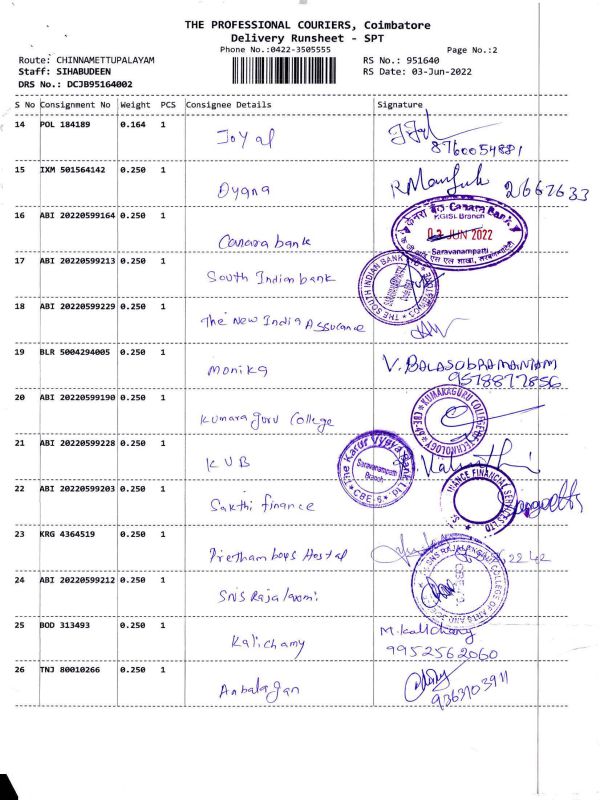 THE PROFESSIONAL COURIERS, Coimbatore
Delivery Runsheet - SPT
Phone No.:0422-3505555
Page No.:2
Route: CHINNAMETTUPALAYAM
RS No.: 951640
Staff: SIHABUDEEN
RS Date: 03-Jun-2022
DRS No.: DCJB95164002
S No Consignment No Weight PCS Consignee Details Signature
14 POL 184189 0.164 1 Joyal
8760054881
15 IXM 501564142 0.250 1 Dyana 2667633
16 ABI 20220599164 0.250 1 Canara bank
केनरा बैंक Canara Bank
KGISL Branch
03 JUN 2022
Saravanampatti
17 ABI 20220599213 0.250 1 South Indian bank
THE SOUTH INDIAN BANK
18 ABI 20220599229 0.250 1 The New India Assurance
19 BLR 5004294005 0.250 1 monika
V. BALASUBRAMANIAM
9578877856
20 ABI 20220599190 0.250 1 Kumara guru College
KUMARAGURU COLLEGE OF TECHNOLOGY
21 ABI 20220599228 0.250 1 KVB
The Karur Vysya Bank Ltd
Saravanampatti
Branch
CBE
22 ABI 20220599203 0.250 1 Sakthi finance
FINANCIAL SERVICES LTD
23 KRG 4364519 0.250 1 Pretham boys Hostal
24 ABI 20220599212 0.250 1 SNS Rajalaxmi
SNS RAJALAKSHMI COLLEGE OF ARTS AND
25 BOD 313493 0.250 1 Kalichamy
M.Kalichamy
9952562060
26 TNJ 80010266 0.250 1 Anbalagan
9363103911